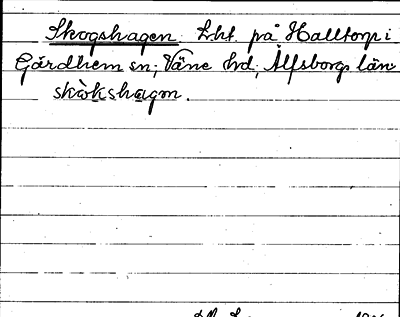 Skogshagen Lht. på Halltorp i
Gärdhem sn; Väne hd; Älfsborgs län
skòkshagɷn.